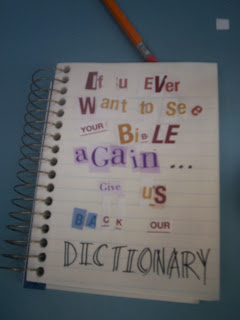 If u Ever
Want to See
YOUR BiBLE
aGain ...
Give us
BACK OUR
DICTIONARY